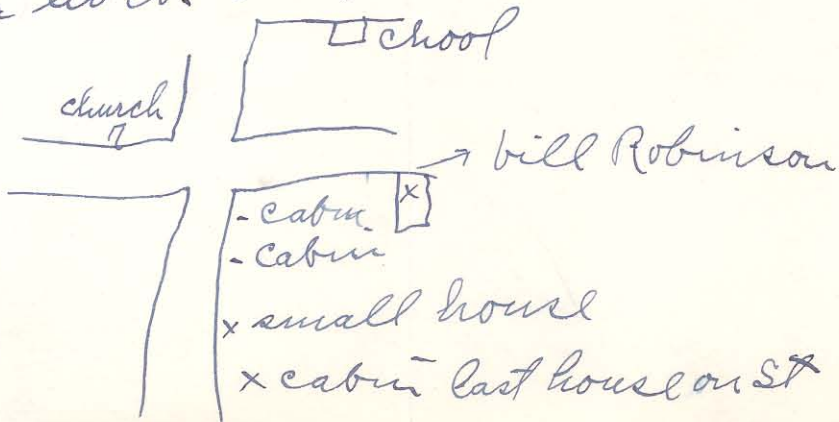 chool
church
bill Robinson
x
- cabin
- cabin
x small house
x cabin last house on St